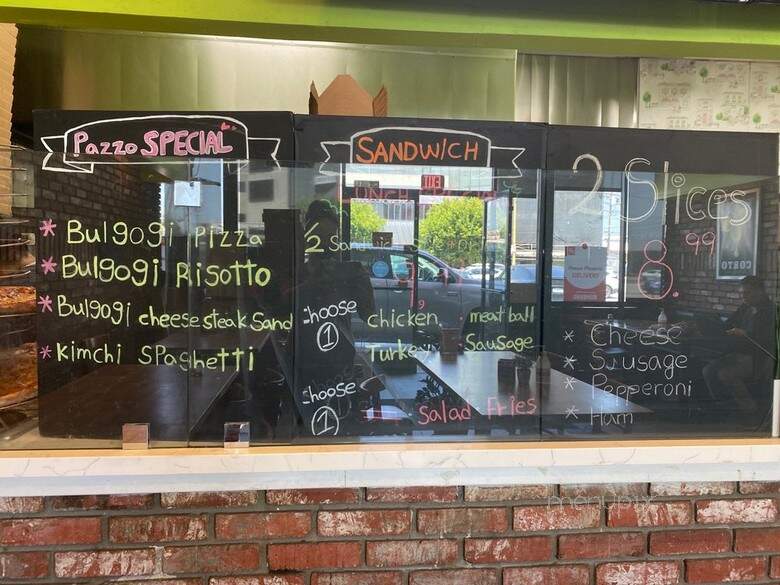 Pazzo SPECIAL
* Bulgogi Pizza
* Bulgogi Risotto
* Bulgogi cheese steak Sand
* Kimchi SPaghetti
SANDWICH
1/2 Sandwich
choose
1
chicken meat ball
Turkey Sausage
choose
1
Salad Fries
2 Slices
8.99
* Cheese
* Sausage
* Pepperoni
* Ham
CORTO
menupix